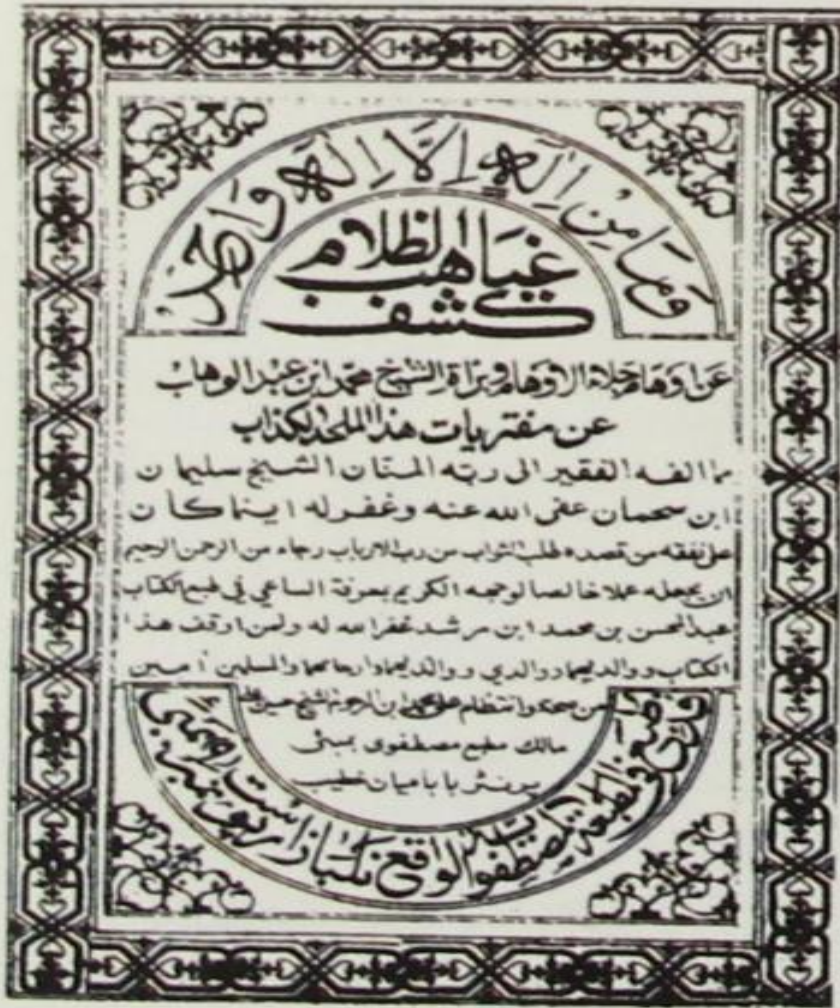 وَمَا مِنْ اِلٰهٍ اِلَّا اِلٰهٌ وَاحِدٌ
كشف غياهب الظلام
عن اوهام جلاء الاوهام وبراءة الشيخ محمد ابن عبد الوهاب
عن مفتريات هذا الملحد الكذاب
مما الفه الفقير الى ربه المنان الشيخ سليمان
ابن سحمان عفى الله عنه وغفر له اينما كان
على نفقه من قصده طلب الثواب من رب الارباب رجاء من الرحمن الرحيم
ان يجعله عملا خالصا لوجهه الكريم بمعرفة الساعي في طبع الكتاب
عبد المحسن بن محمد ابن مرشد غفر الله له ولمن اوقف هذا
الكتاب ووالديهما ووالدي ووالديهما وارحامهما والمسلمين امين
مالك مطبع مصطفوى بمبئى
پرنٹر بابا ميان خطيب
قد طبع في المطبعة المصطفوية الواقع